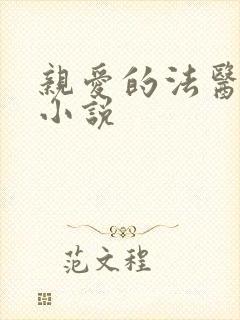 親愛的法醫
小說
范文程